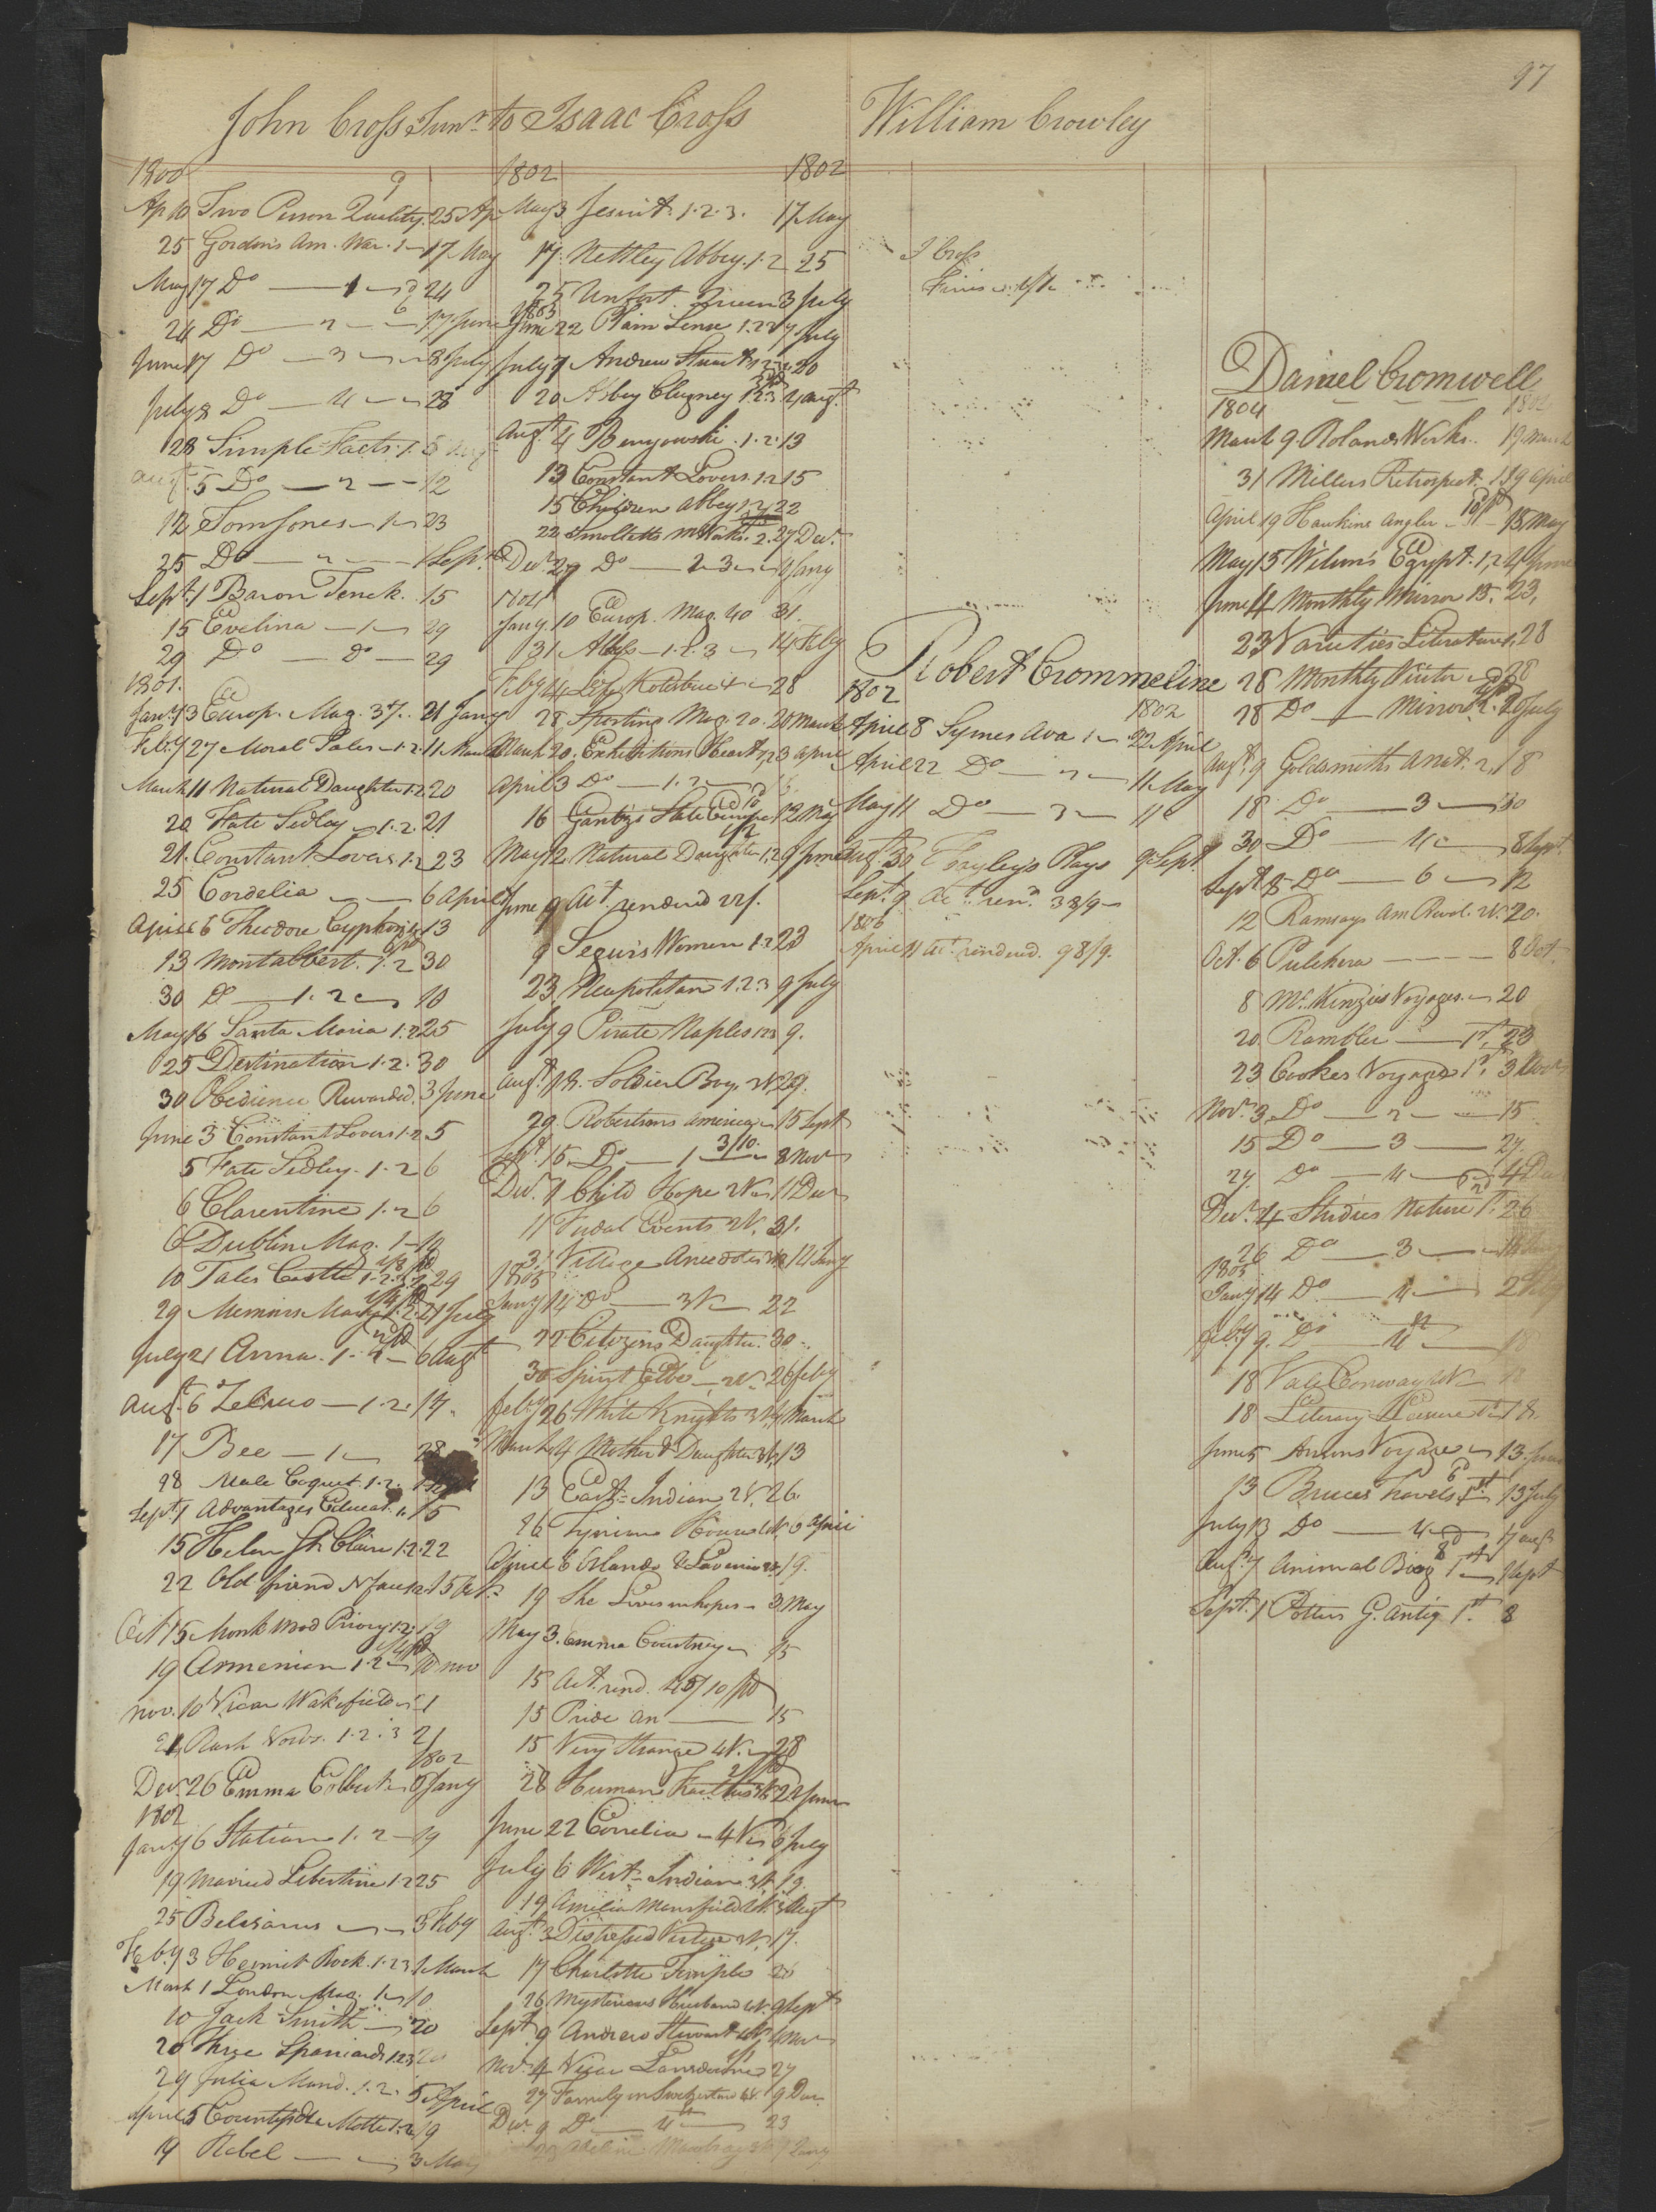 97
John Cross Junr. to Isaac Cross
1800
Ap 10 Two Person Quality. 25 Ap
25 Gordon's Am. War. 1 17 May
May 17 Do 1 24
24 Do 2 17 June
June 17 Do 3 8 July
July 8 Do 4 28
28 Simple Facts 1. 5
Augt. 5 Do 2 12
12 Tom Jones 1 23
25 Do 2 1 Sept.
Sept. 1 Baron Tenck. 15
15 Evelina 1 29
29 Do do 29
1801.
Jany. 13 Europ. Mag. 37. 21 Jany
Feby 27 Moral Tales 1.2. 11 March
March 11 Natural Daughter 1.2 20
20 Fate Sedley 1.2. 21
21. Constant Lovers 1.2 23
25 Cordelia 6 April
April 6 Theodore Cyphon 13
13 Montalbert. 1.2 30
30 Do 1.2 10
May 16 Santa Maria 1.2 25
25 Destination 1.2. 30
30 Obedience Rewarded. 3 June
June 3 Constant Lovers 1.2 5
5 Fate Sedley. 1.2 6
6 Clarentine 1.2 6
6 Dublin Mag. 1 10
10 Tales Castle 1.2. 29
29 Memoirs Mary 1.2. 21 July
July 21 Anna. 1.2 6 Augt
Augt. 6 Zeluco 1.2. 17.
17 Bee 1 28
28 Male Coquet 1.2.
Sept. 1 Advantages Educat. 15
15 Helen St. Claire 1.2. 22
22 Old friend N face 1.2. 15 Oct.
Oct 15 Monk Wod Priory 1.2. 19
19 Armenian 1.2 10 Nov
Nov. 10 Vicar Wakefield 21
21 Rash Vows. 1.2.3 21
1802
Decr. 26 Emma Corbett 6 Jany
1802
Jany 6 Statira 1.2 19
19 Married Libertine 1.2 25
25 Belisarius 3 Feby
Feby 3 Hermit Rock. 1.2.3 1 March
March 1 London Mag. 1 10
10 Jack Smith 20
20 Three Spaniards 1.2.3
29 Julia Mand. 1.2. 5 April
April 5 Countess De La Motte 1.2. 19
19 Rebel 3 May
1802 1802
May 3. Jesuit. 1.2.3. 17 May
17. Nettley Abbey. 1.2 25
25 Unfort. Queen 3 July
1803
June 22 Plain Sense 1.2 7 July
July 7 Andrew Stuart 1.2. 20
20 Abby Clugney 1.2.3 4 Augt.
Augt. 4 Benyowski. 1.2. 13
13 Constant Lovers. 1.2 15
15 Children Abbey 1.2 22
22 Smolletts Works. 2. 27 Decr.
Decr. 27 Do 2 3 10 Jany
1804
Jany. 10 Europ. Mag. 40 31.
31 Albys 1.2.3 14 Feby
Feby 14 Life Kotzbue 28
28 Sporting Mag. 20. 20 March
March 20. Exhibitions Heart 1,2 3 April
April 3 Do 1.2
16 Gentzs State Europe 12 May
May 12 Natural Daughter 1,2 9 June
June 9 Act. rendered 22/.
9 Segur's Women 1.2 23
23 Neapolitan 1.2.3 9 July
July 9 Pirate Naples 123 9.
Augt. 18. Soldier Boy. 2V. 29.
29. Robertsons America 15 Sept
Sept. 15. Do 1 3/10. 8 Nov
Decr. 7 Child Hope 2V. 11 Decr
11 Fudal Events 2V. 31.
31 Village Anecdotes 14 Jany
1805
Jany 14 Do 3V 22
22 Citizens Daughter. 30
30 Spirit Elbe 2V. 26 feby
feby 26. White Knights 3V. 4 March
March 4 Mother & Daughter 3V. 13
13 East-Indian 2V. 26.
26 April
April 6 Orlando & Lavinia 2V. 19.
19 She Lives in hopes 3 May
May 3. Emma Courtney 15
15 Act. rend. 45/10 pd
15 Pride An 15
15 Very Strange 4V. 28
28 Human Frailties 3V. 22 June
June 22 Corelia 4V 6 July
July 6 West-Indian 3V. 19.
19 Amelia Mansfield 3 Augt
Augt. 3 Distressed Virtue 2V. 17.
17 Charlotte Temple 26
26 Mysterious Husband 4V. 9 Sept
Sept. 9 Andrew Stewart 4V. 4 Nov
Nov. 4 Vicar Lansdowne 27
27 Family in Swizertan 4V. 9 Decr.
Decr. 9 Do 4th 23
23 Adeline Mowbray 3V. Jany
William Crowley
I Cross
Robert Crommeline
1802 1802
April 8 Symes Ava 1 22 April
April 22 Do 2 11 May
May 11 Do 3 11
Augt. 30 Fayley's Plays 9 Sept.
Sept. 9 Act. ren. 38/9
1806
April 11 act. rendered. 98/9.
Daniel Cromwell
1804 1802
March 9. Rolands Works. 19 March
31 Millers Retrospect. 1 19 April
April 19 Hawkins Angler 15 May
May 15 Wilson's Egypt. 1, 2 4 June
June 4 Monthly Mirror 13. 23,
23 Varieties Literature 1, 28
28 Monthly Visitor 28
28 Do Mirror 2. 20 July
Augt. 9 Goldsmiths Anat. 2, 18
18 Do 3 30
30 Do 4 8 Sept.
Sept 8 Do 6 12
12 Ramsays Am Revol. 2V. 20.
Oct. 6 Pulchera 8 Oct.
8 McKenzies Voyages. 20
20 Rambler 1st. 23
23 Cookes Voyages 1st. 3 Nov
Nov. 3 Do 2 15
15 Do 3 27.
27. Do 4 4 Dec
Decr. 4 Studies Nature 1st. 26
26 Do 3 14 Jany
1805
Jany 14 Do. 4 2 Feby
feby 9. Do 4th 18
18 Vale Conway 4V 18
18 Literary Leisure 18.
June 5 Ansons Voyage 13 June
13 Bruces Travels 1st 13 July
July 13 Do 4 7 Augt
Augt. 7 Animal Biog 1st 1 Sept
Sept. 1 Potters G. Antiq 1st. 8